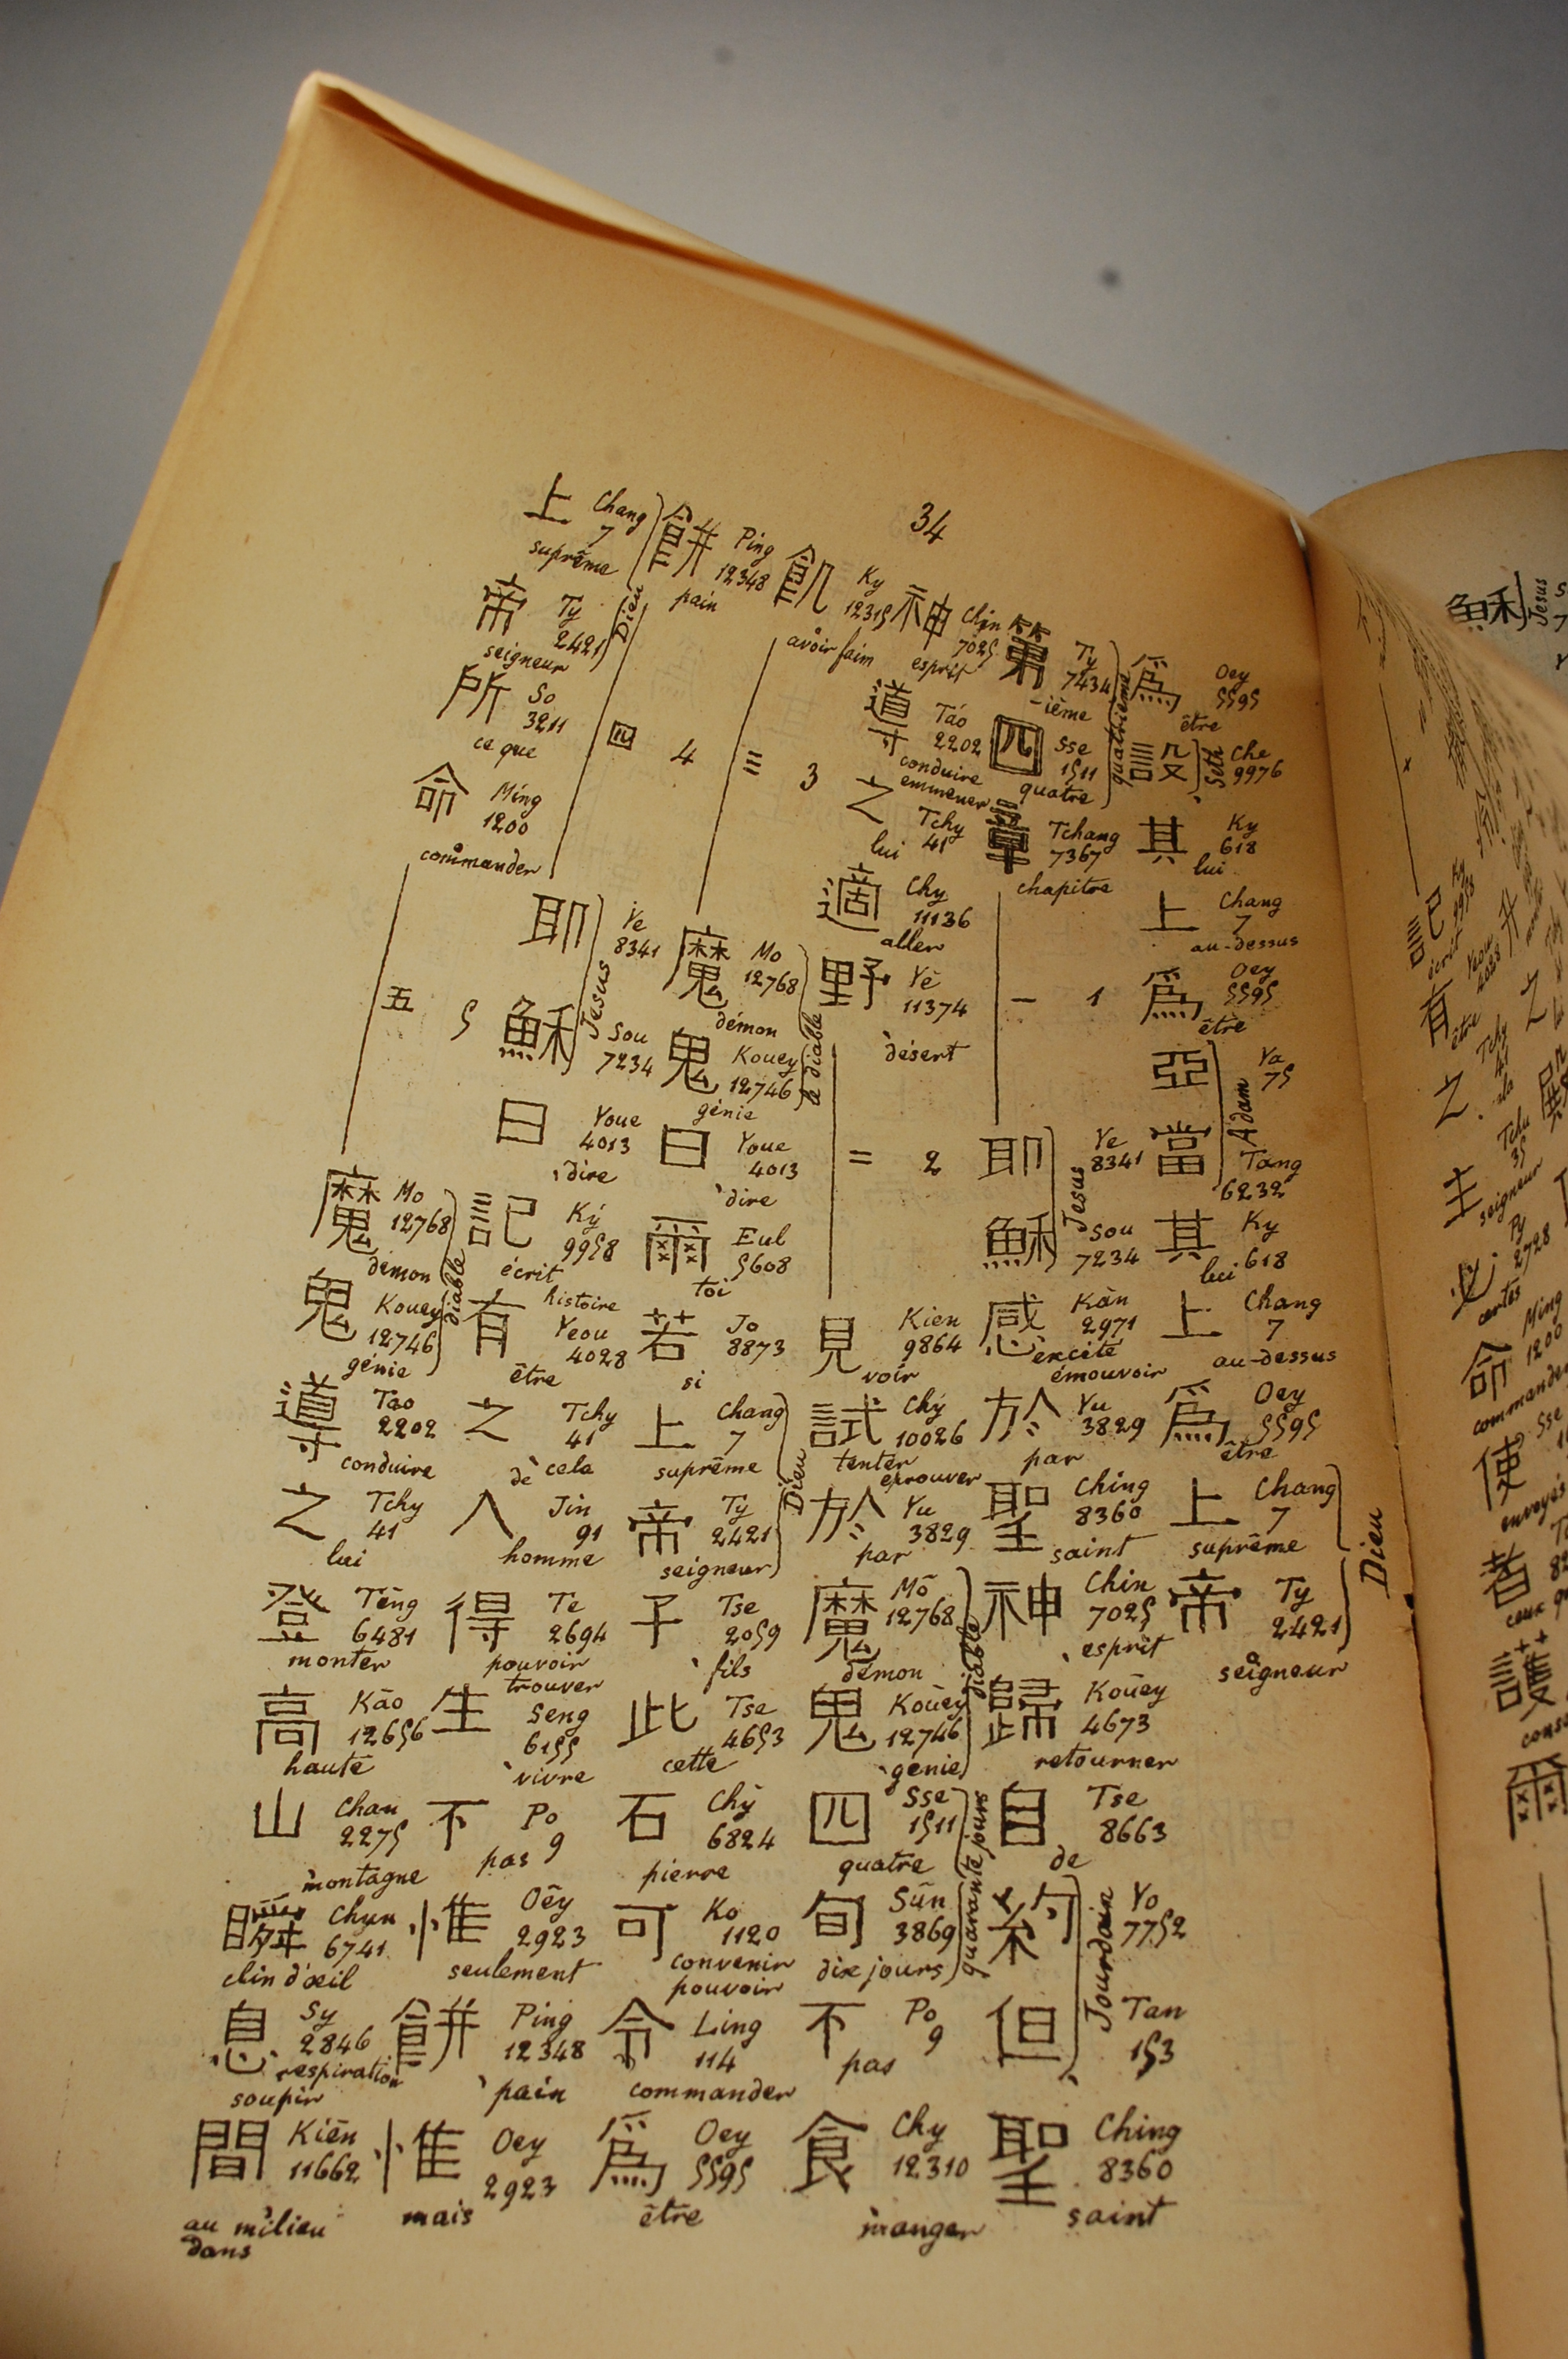 34
爲 Oey 5595 être
設 Che 9976 Seth
其 Ky 618 lui
上 Chang 7 au-dessus
爲 Oey 5595 être
亞 Ya 75
當 Tang 6232
Adam
其 Ky 618 lui
上 Chang 7 au-dessus
爲 Oey 5595 être
上 Chang 7 suprême
帝 Ty 2421 seigneur
Dieu
第 Ty 7434 -ième
四 Sse 1511 quatre
quatrième
章 Tchang 7367 chapitre
一 1
耶 Ye 8341
穌 Sou 7234
Jesus
感 Kàn 2971 excité émouvoir
於 Yu 3829 par
聖 Ching 8360 saint
神 Chin 7025 esprit
歸 Kouēy 4673 retourner
自 Tse 8663 de
約 Yo 7752
但 Tan 153
Jourdain
聖 Ching 8360 saint
神 Chin 7025 esprit
導 Táo 2202 conduire emmener
之 Tchy 41 lui
適 Chy 11136 aller
野 Yè 11374 désert
二 2
見 Kien 9864 voir
試 Chý 10026 tenter eprouver
於 Yu 3829 par
魔 Mō 12768 démon
鬼 Kouèy 12746 génie
diable
四 Sse 1511 quatre
旬 Sūn 3869 dix jours
quarante jours
不 Po 9 pas
食 Chy 12310 manger
飢 Ky 12315 avoir faim
三 3
魔 Mo 12768 démon
鬼 Kouey 12746 génie
le diable
曰 Youe 4013 dire
爾 Eul 5608 toi
若 Jo 8873 si
上 Chang 7 suprême
帝 Ty 2421 seigneur
Dieu
子 Tse 2059 fils
此 Tse 4653 cette
石 Chy 6824 pierre
可 Ko 1120 convenir pouvoir
令 Ling 114 commander
爲 Oey 5595 être
餅 Ping 12348 pain
四 4
耶 Ye 8341
穌 Sou 7234
Jesus
曰 Youe 4013 dire
記 Ký 9958 écrit histoire
有 Yeou 4028 être
之 Tchy 41 de cela
人 Jin 91 homme
得 Te 2694 pouvoir trouver
生 Seng 6155 vivre
不 Po 9 pas
惟 Oēy 2923 seulement
餅 Ping 12348 pain
惟 Oey 2923 mais
上 Chang 7 suprême
帝 Ty 2421 seigneur
Dieu
所 So 3211 ce que
命 Ming 1200 commander
五 5
魔 Mo 12768 démon
鬼 Kouey 12746 génie
diable
導 Tao 2202 conduire
之 Tchy 41 lui
登 Tēng 6481 monter
高 Kāo 12656 haute
山 Chan 2275 montagne
瞬 Chun 6741 clin d'œil
息 Sy 2846 respiration soupir
間 Kiēn 11662 au milieu dans
穌 Jesus
記 Ky 9958 écrit
有 Yeou 4028 être
之 Tchy 41 cela
主 Tchu 35 seigneur
必 Py 2728 certes
命 Ming 1200
使 Sse
者
護
爾